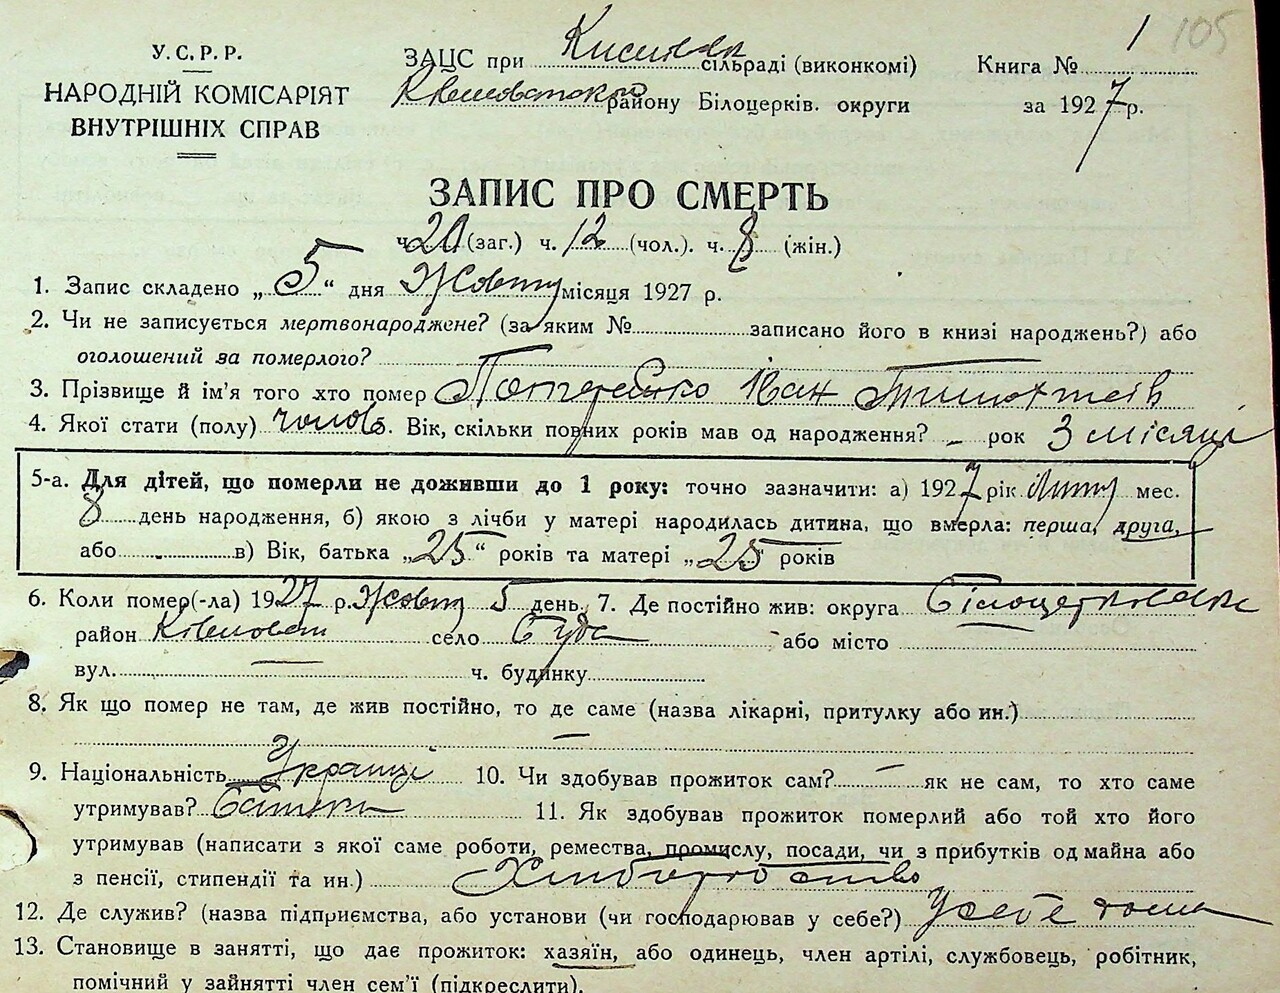 1 105
У.С.Р.Р.
НАРОДНІЙ КОМІСАРІЯТ
ВНУТРІШНІХ СПРАВ
ЗАЦС при сільраді (виконкомі) Книга №
району Білоцерків. округи за 1927 р.
ЗАПИС ПРО СМЕРТЬ
ч. 20 (заг.) ч. 12 (чол.). ч. 8 (жін.)
1. Запис складено „5“ дня Жовтня місяця 1927 р.
2. Чи не записується мертвонароджене? (за яким № записано його в книзі народжень?) або
оголошений за померлого?
3. Прізвище й ім'я того хто помер Іван
4. Якої статі (полу) чолов 5. Вік, скільки повних років мав од народження? – рок 3 місяці
5-а. Для дітей, що померли не доживши до 1 року: точно зазначити: а) 1927 рік мес.
8 день народження, б) якою з лічби у матері народилась дитина, що вмерла: перша, друга,
або в) Вік, батька „25“ років та матері „25“ років
6. Коли помер(-ла) 1927 р. Жовтня 5 день, 7. Де постійно жив: округа Білоцерківська
район село Буда або місто
вул. — ч. будинку
8. Як що помер не там, де жив постійно, то де саме (назва лікарні, притулку або ин.)
—
9. Національність Українці 10. Чи здобував прожиток сам? — як не сам, то хто саме
утримував? Батьки 11. Як здобував прожиток померлий або той хто його
утримував (написати з якої саме роботи, ремества, промислу, посади, чи з прибутків од майна або
з пенсії, стипендії та ин.) Хліборобство
12. Де служив? (назва підприємства, або установи (чи господарював у себе?) У себе дома
13. Становище в занятті, що дає прожиток: хазяїн, або одинець, член артілі, службовець, робітник,
помічний у зайнятті член сем'ї (підкреслити).